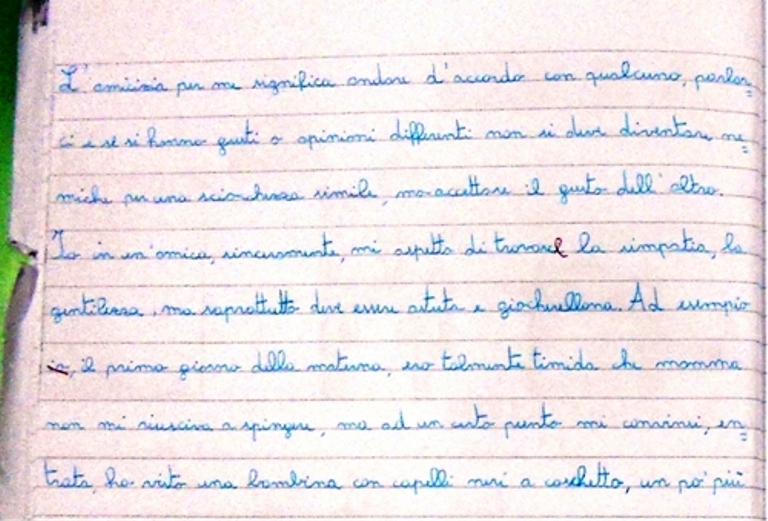 L'amicizia per me significa andare d'accordo con qualcuno, parlar=
ci e se si hanno gusti o opinioni differenti non si deve diventare ne=
miche per una sciocchezza simile, ma accettare il gusto dell'altro.
Io in un'amica, sinceramente, mi aspetto di trovare la simpatia, la
gentilezza, ma soprattutto deve essere astuta e giocherellona. Ad esempio
il primo giorno della materna, ero talmente timida che mamma
non mi riusciva a spingere, ma ad un certo punto mi convinsi, en=
trata, ho visto una bambina con capelli neri a caschetto, un po' più